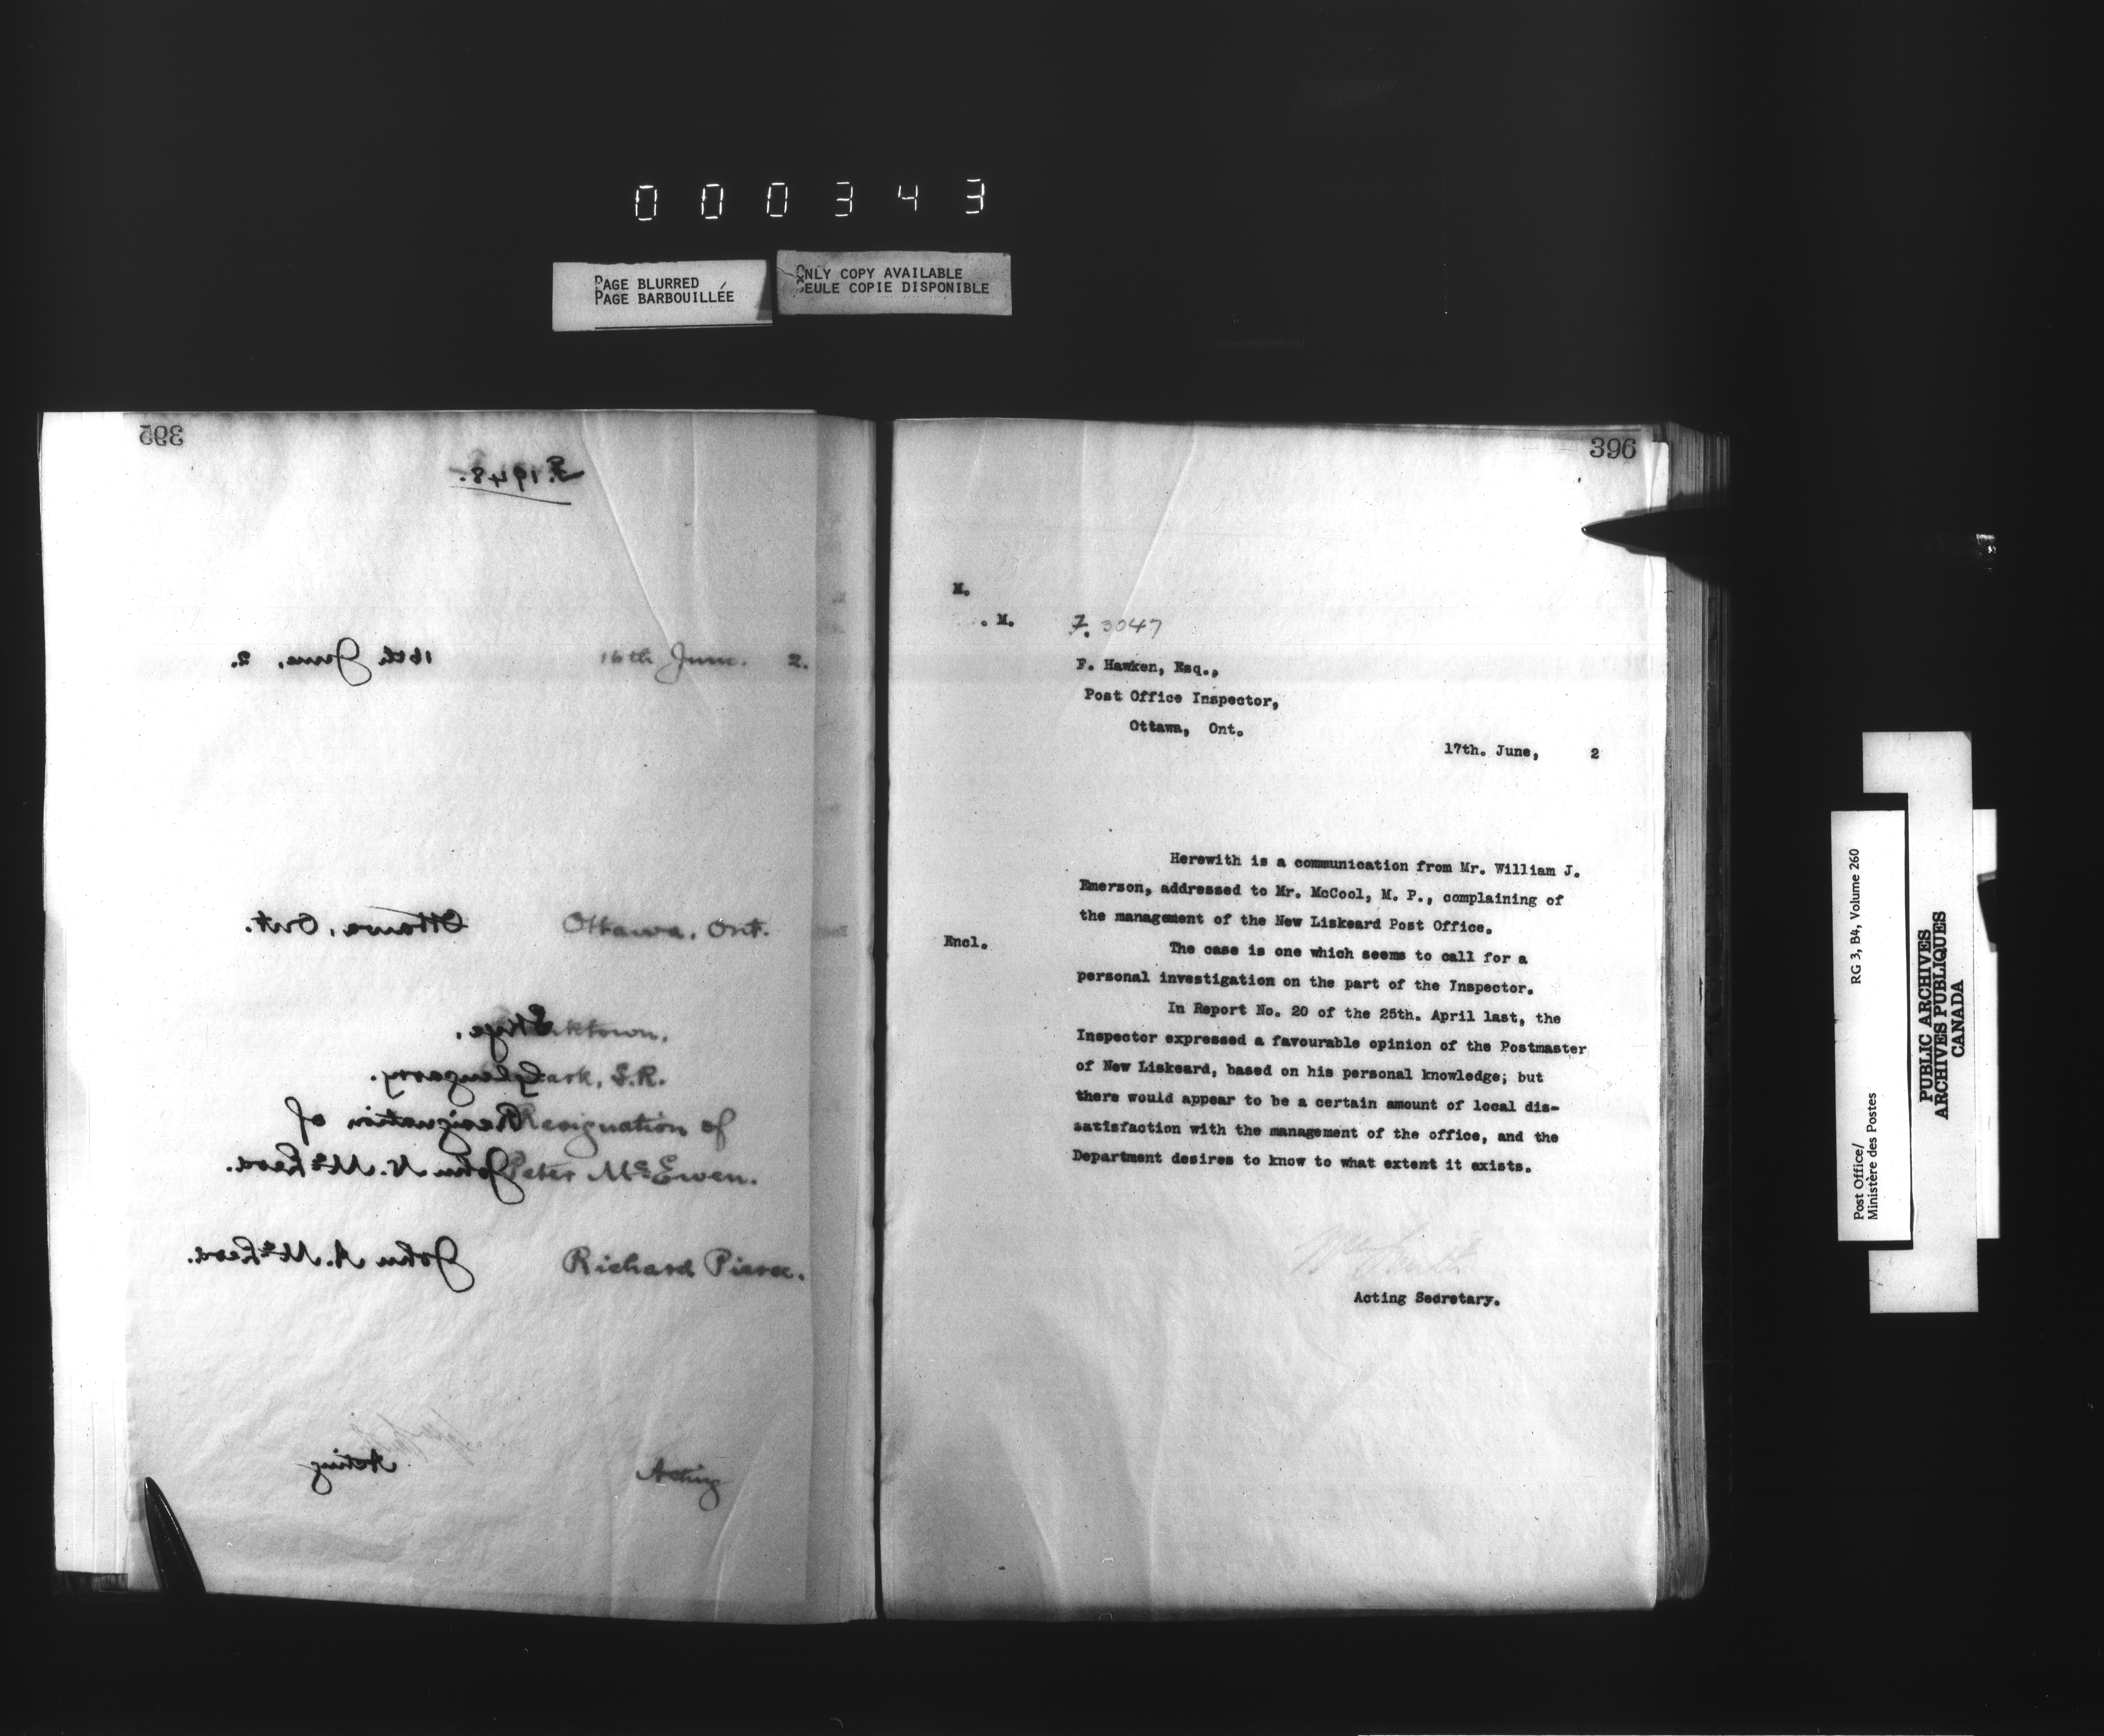 000343
PAGE BLURRED
PAGE BARBOUILLÉE
ONLY COPY AVAILABLE
SEULE COPIE DISPONIBLE
395
F. 1948.
16th June, 2.
16th June. 2.
Ottawa, Ont.
Ottawa, Ont.
Skye.
Glengarry.
Resignation of
John N. McLeod.
John A. McLeod.
Acting
ark, S.R.
Resignation of
Peter McEwen.
Richard Pierce.
Acting
396
M.
. M.
F. 3047
F. Hawken, Esq.,
Post Office Inspector,
Ottawa, Ont.
17th. June, 2
Herewith is a communication from Mr. William J.
Emerson, addressed to Mr. McCool, M. P., complaining of
the management of the New Liskeard Post Office.
Encl.
The case is one which seems to call for a
personal investigation on the part of the Inspector.
In Report No. 20 of the 25th. April last, the
Inspector expressed a favourable opinion of the Postmaster
of New Liskeard, based on his personal knowledge; but
there would appear to be a certain amount of local dis-
satisfaction with the management of the office, and the
Department desires to know to what extent it exists.
Wm Smith
Acting Secretary.
Post Office/
Ministère des Postes
RG 3, B4, Volume 260
PUBLIC ARCHIVES
ARCHIVES PUBLIQUES
CANADA